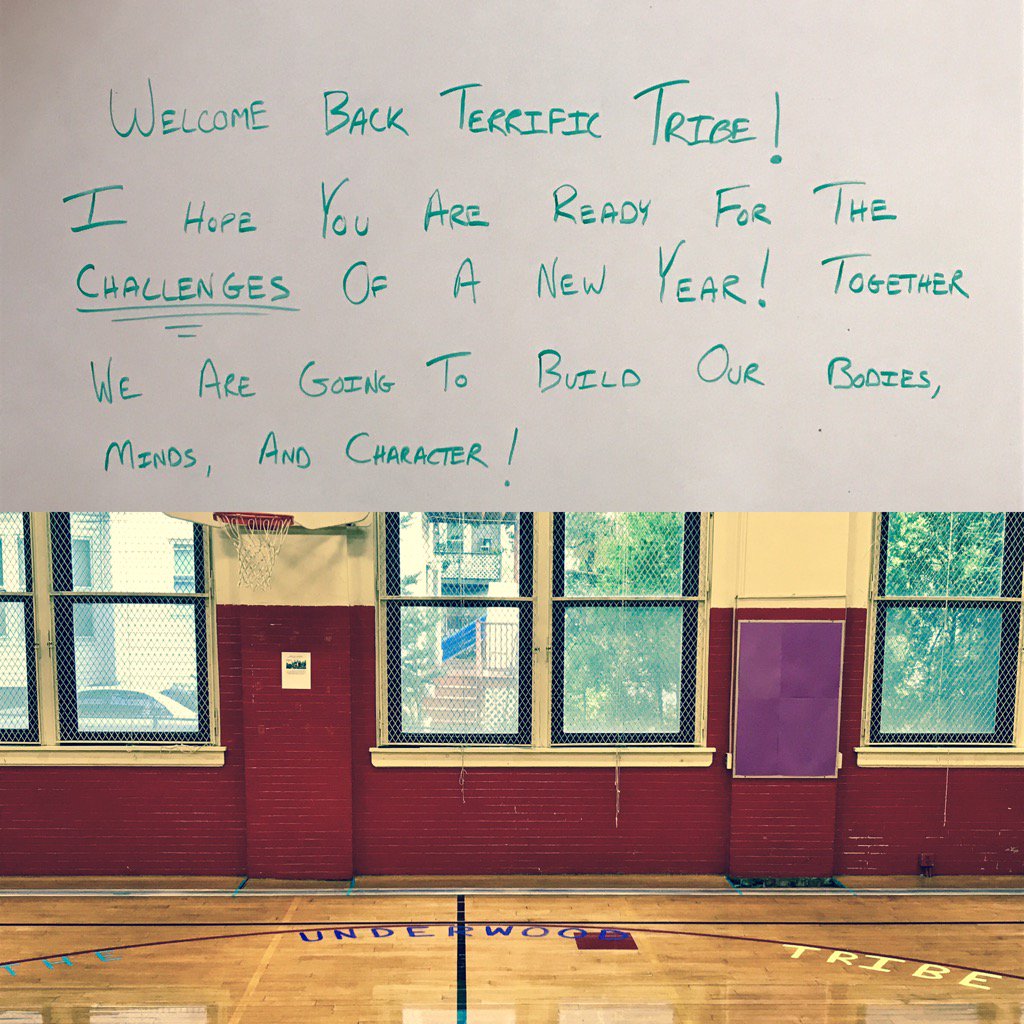 WELCOME BACK TERRIFIC TRIBE!
I HOPE YOU ARE READY FOR THE
CHALLENGES OF A NEW YEAR! TOGETHER
WE ARE GOING TO BUILD OUR BODIES,
MINDS, AND CHARACTER!
THE UNDERWOOD TRIBE